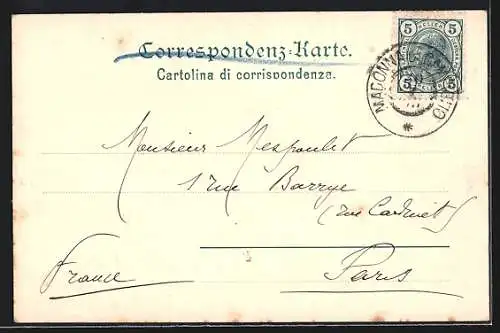 Correspondenz-Karte.
Cartolina di corrispondenza.
5 5
HELLER
5 5
MADONNA
*
Monsieur Mespoulet
1 rue Barrye
(rue Cardinet)
Paris
France